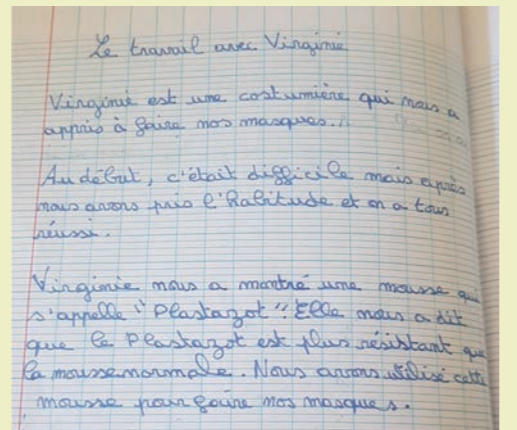 Le travail avec Virginie
Virginie est une costumière qui nous a
appris à faire nos masques.
Au début, c'était difficile mais après
nous avons pris l'habitude et on a tous
réussi.
Virginie nous a montré une mousse qui
s'appelle "Plastazot". Elle nous a dit
que le Plastazot est plus résistant que
la mousse normale. Nous avons utilisé cette
mousse pour faire nos masques.